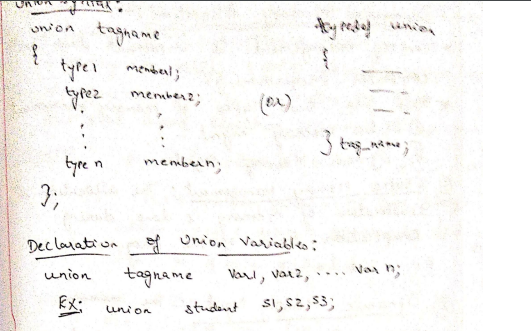 Union Syntax:
union tagname
{
type1 member1;
type2 member2;
type n membern;
};
(or)
typedef union
{
} tag_name;
Declaration of Union Variables:
union tagname Var1, Var2, .... Var n;
Ex: union student S1, S2, S3;